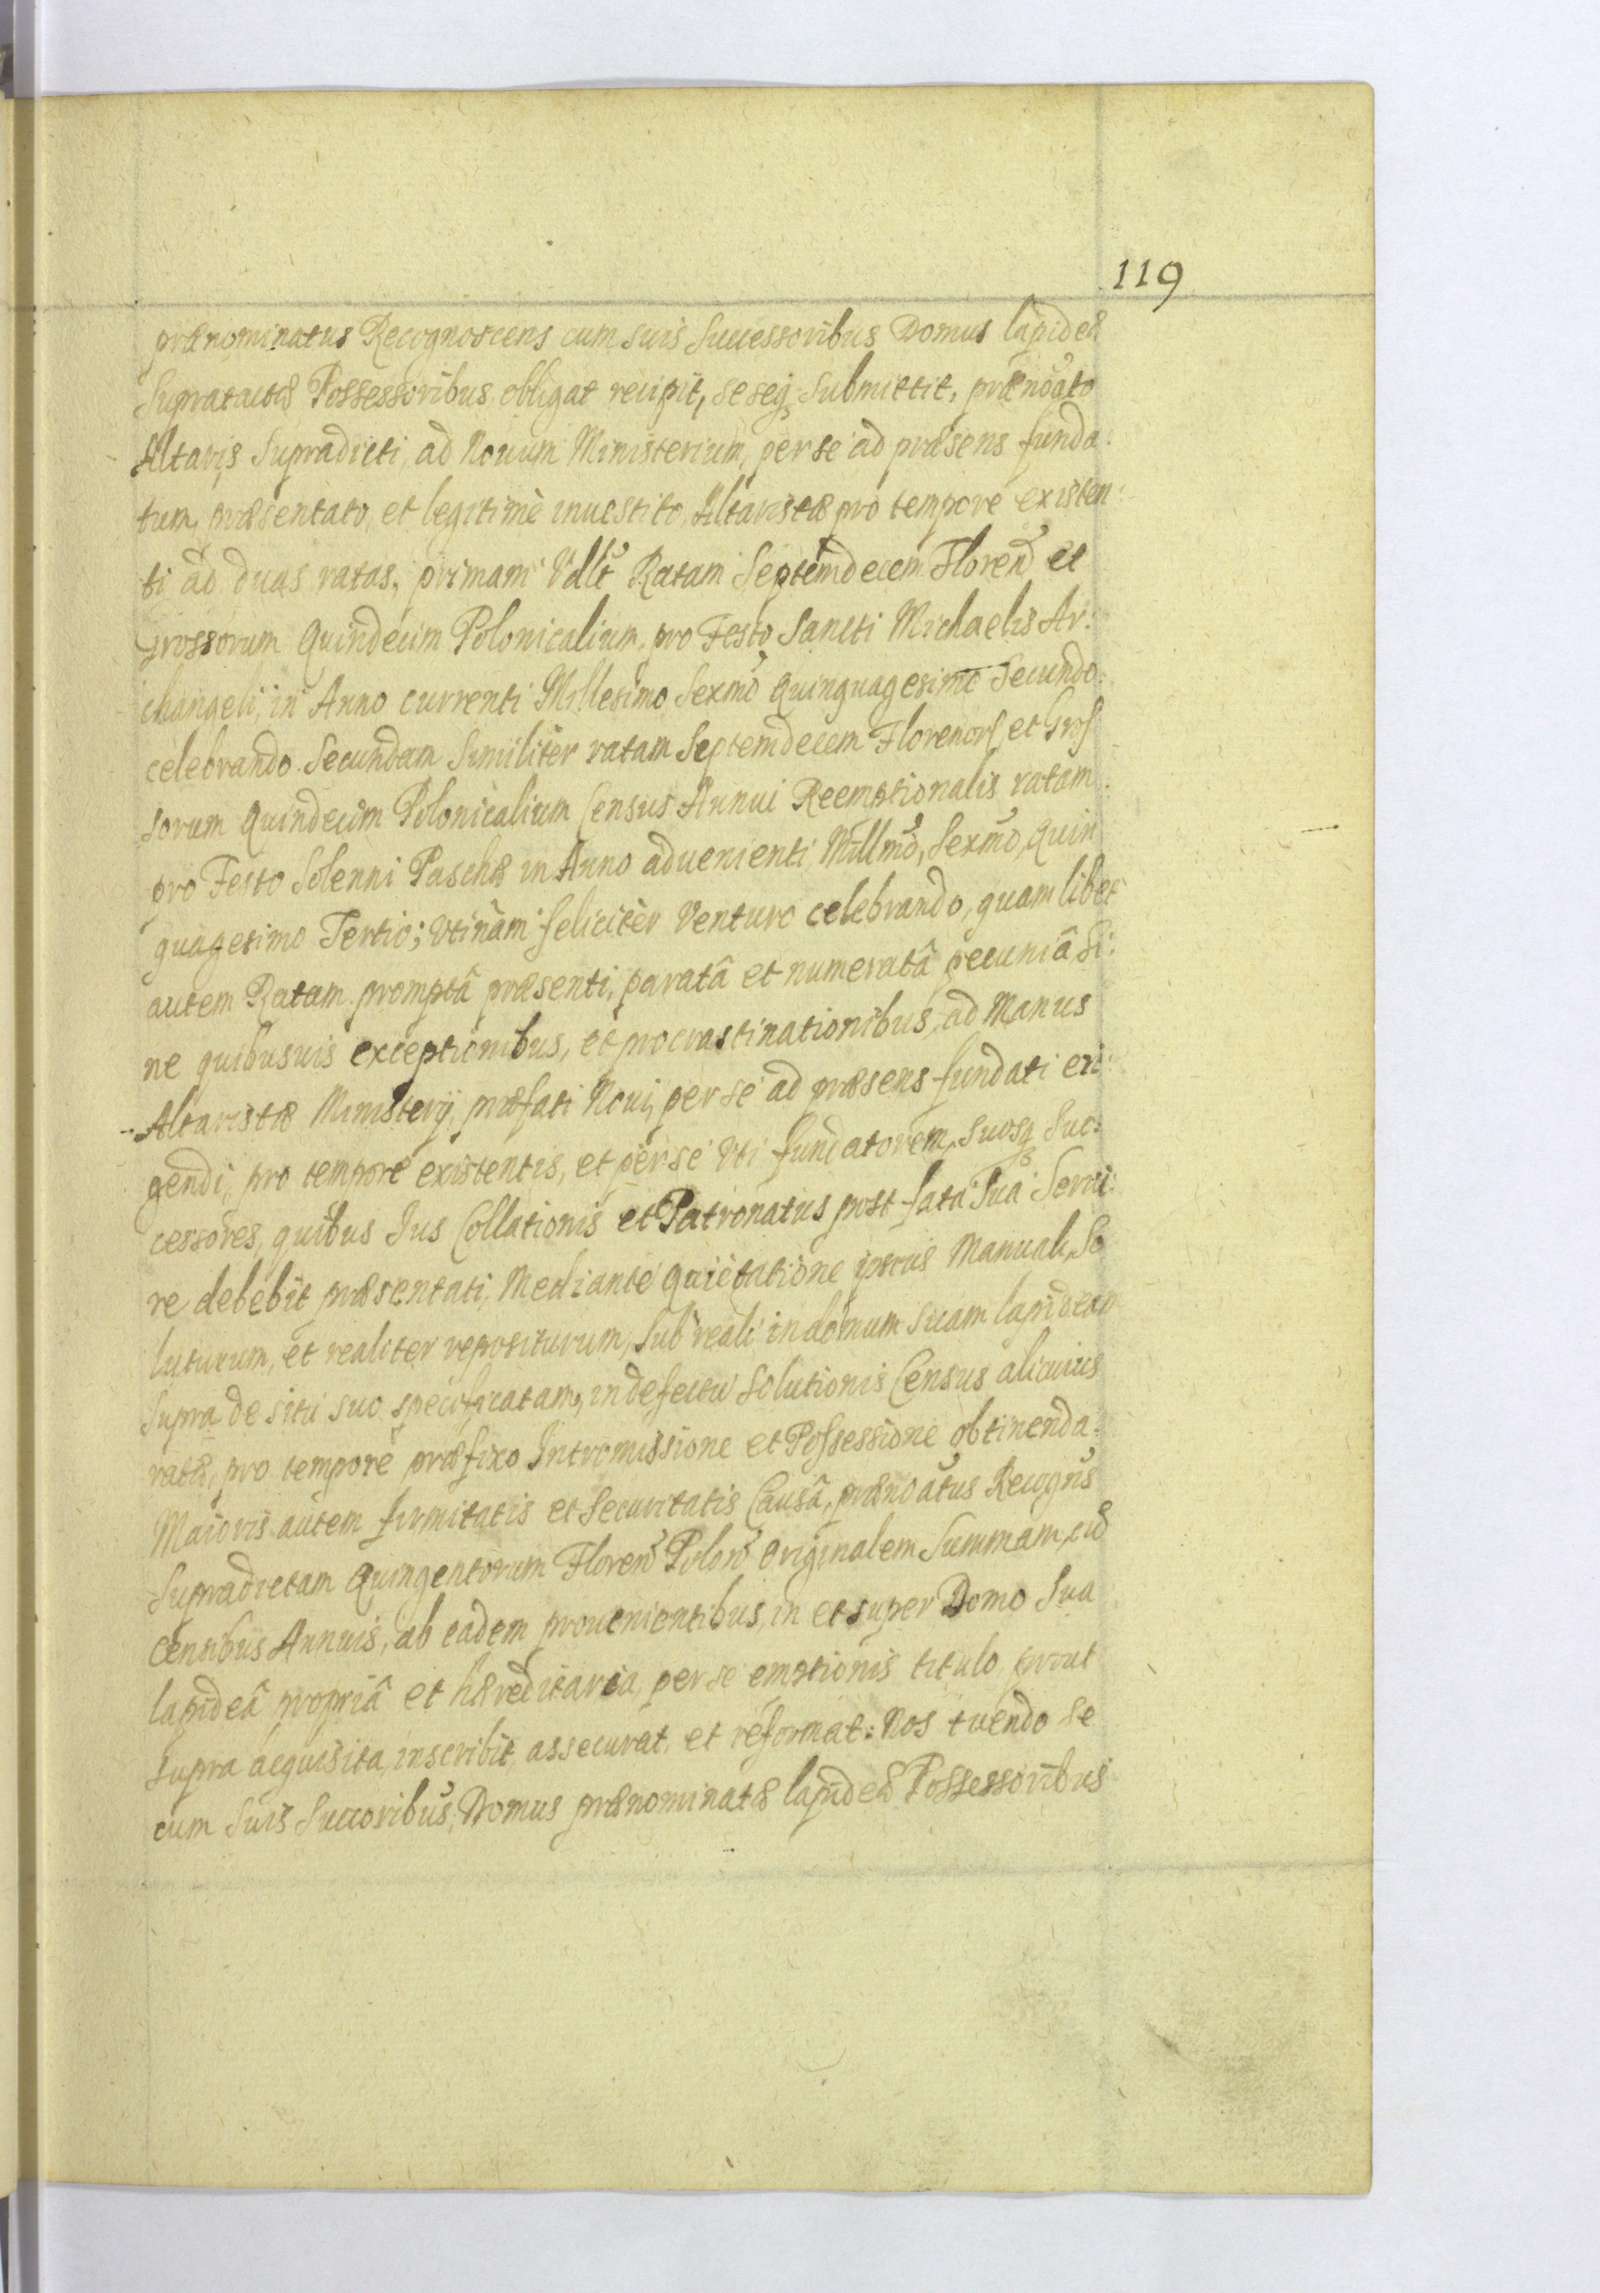 119
prænominatus Recognoscens cum suis Successoribus Domus lapideæ
Supratactæ Possessoribus obligat recipit, seseq; submittit, prænoato
Altaris Supradicti, ad Nouum Ministerium, per se ad præsens funda:
tum, præsentato, et legitimè inuestito, Altaristæ pro tempore existen:
ti ad duas ratas, primam Vdlt Ratam Septemdecem Floren et
Grossorum Quindecim Polonicalium, pro Festo Sancti Michaelis Ar:
changeli, in Anno currenti Millesimo Sexmo Quinquagesimo Secundo
celebrando. Secundam Similiter ratam Septemdecem Florenor et Gros
sorum Quindecim Polonicalium Census Annui Reemptionalis ratam
pro Festo Solenni Paschæ in Anno aduenienti Millmo, Sexmo, Quin
quagesimo Tertio; Vtinam feliciter Venturo celebrando, quam libet
autem Ratam promptâ præsenti, paratâ et numeratâ pecuniâ Si:
ne quibusuis exceptionibus, et procrastinationibus, ad Manus
Altaristæ Ministerij præfati Noui, per se ad præsens fundati eri:
gendi, pro tempore existentis, et per se Vti fundatorem, suosq Suc:
cessores, quibus Jus Collationis et Patronatus post fata Sua Serui:
re debebit præsentati, Mediante quietatione ipsius Manuali, So
luturum, et realiter repositurum, Sub reali in domum suam lapideam
Supra de situ suo specificatam, in defectu Solutionis Census alicuius
ratæ, pro tempore præfixo Intromissione et Possessione obtinenda:
Maioris autem firmitatis et Securitatis Causâ, prænoatus Recogns
Supradictam Quingentorum Floren Polon Originalem Summam, cu
Censibus Annuis, ab eadem prouenientibus, in et super Domo Sua
lapideâ propriâ et hæreditaria, per se emptionis titulo, prout
Supra acquisita, inscribit, assecurat, et reformat: Nos tuendo se
cum Suis Succoribus, Domus prænominatæ lapideæ Possessoribus